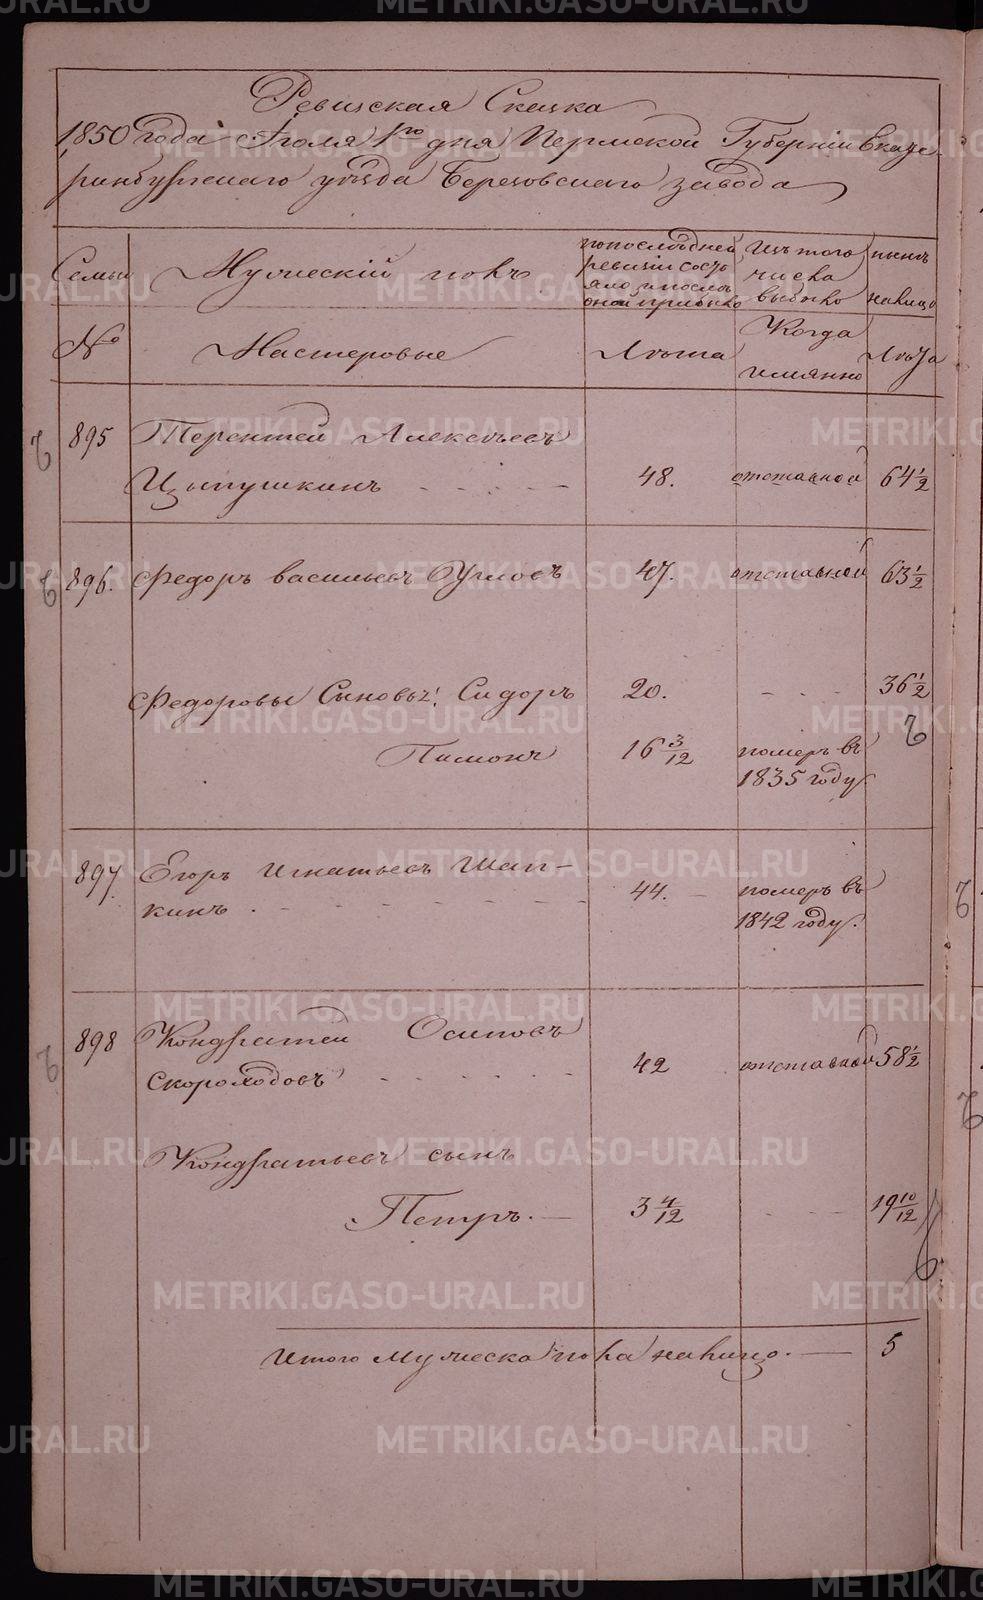 Ревизская Сказка
1850 года Июля 1го дня Пермской Губернии Екате
ринбургскаго уѣзда Березовскаго завода
Семьи
Мужескій полъ
по послѣдней
ревизіи состо
яло и после
оной прибыло
Изъ того
числа
выбыло
нынѣ
налицо
№
Мастеровые
Лѣта
Когда
имянно
Лѣта
895
Терентей Алексѣевъ
Цыпушкинъ
48.
отставной
64 1/2
896.
Федоръ Васильевъ Угловъ
47.
отставной
63 1/2
Федоровы Сыновья: Сидоръ
20.
36 1/2
Пимонъ
16 3/12
померъ въ
1835 году.
897.
Егоръ Игнатьевъ Шап-
кинъ
44.
померъ въ
1842 году.
898
Кондратей Осиповъ
Скороходовъ
42
отставной
58 1/2
Кондратьевъ сынъ
Петръ.
3 4/12
19 10/12
Итого Мужеска пола налицо.
5
METRIKI.GASO-URAL.RU